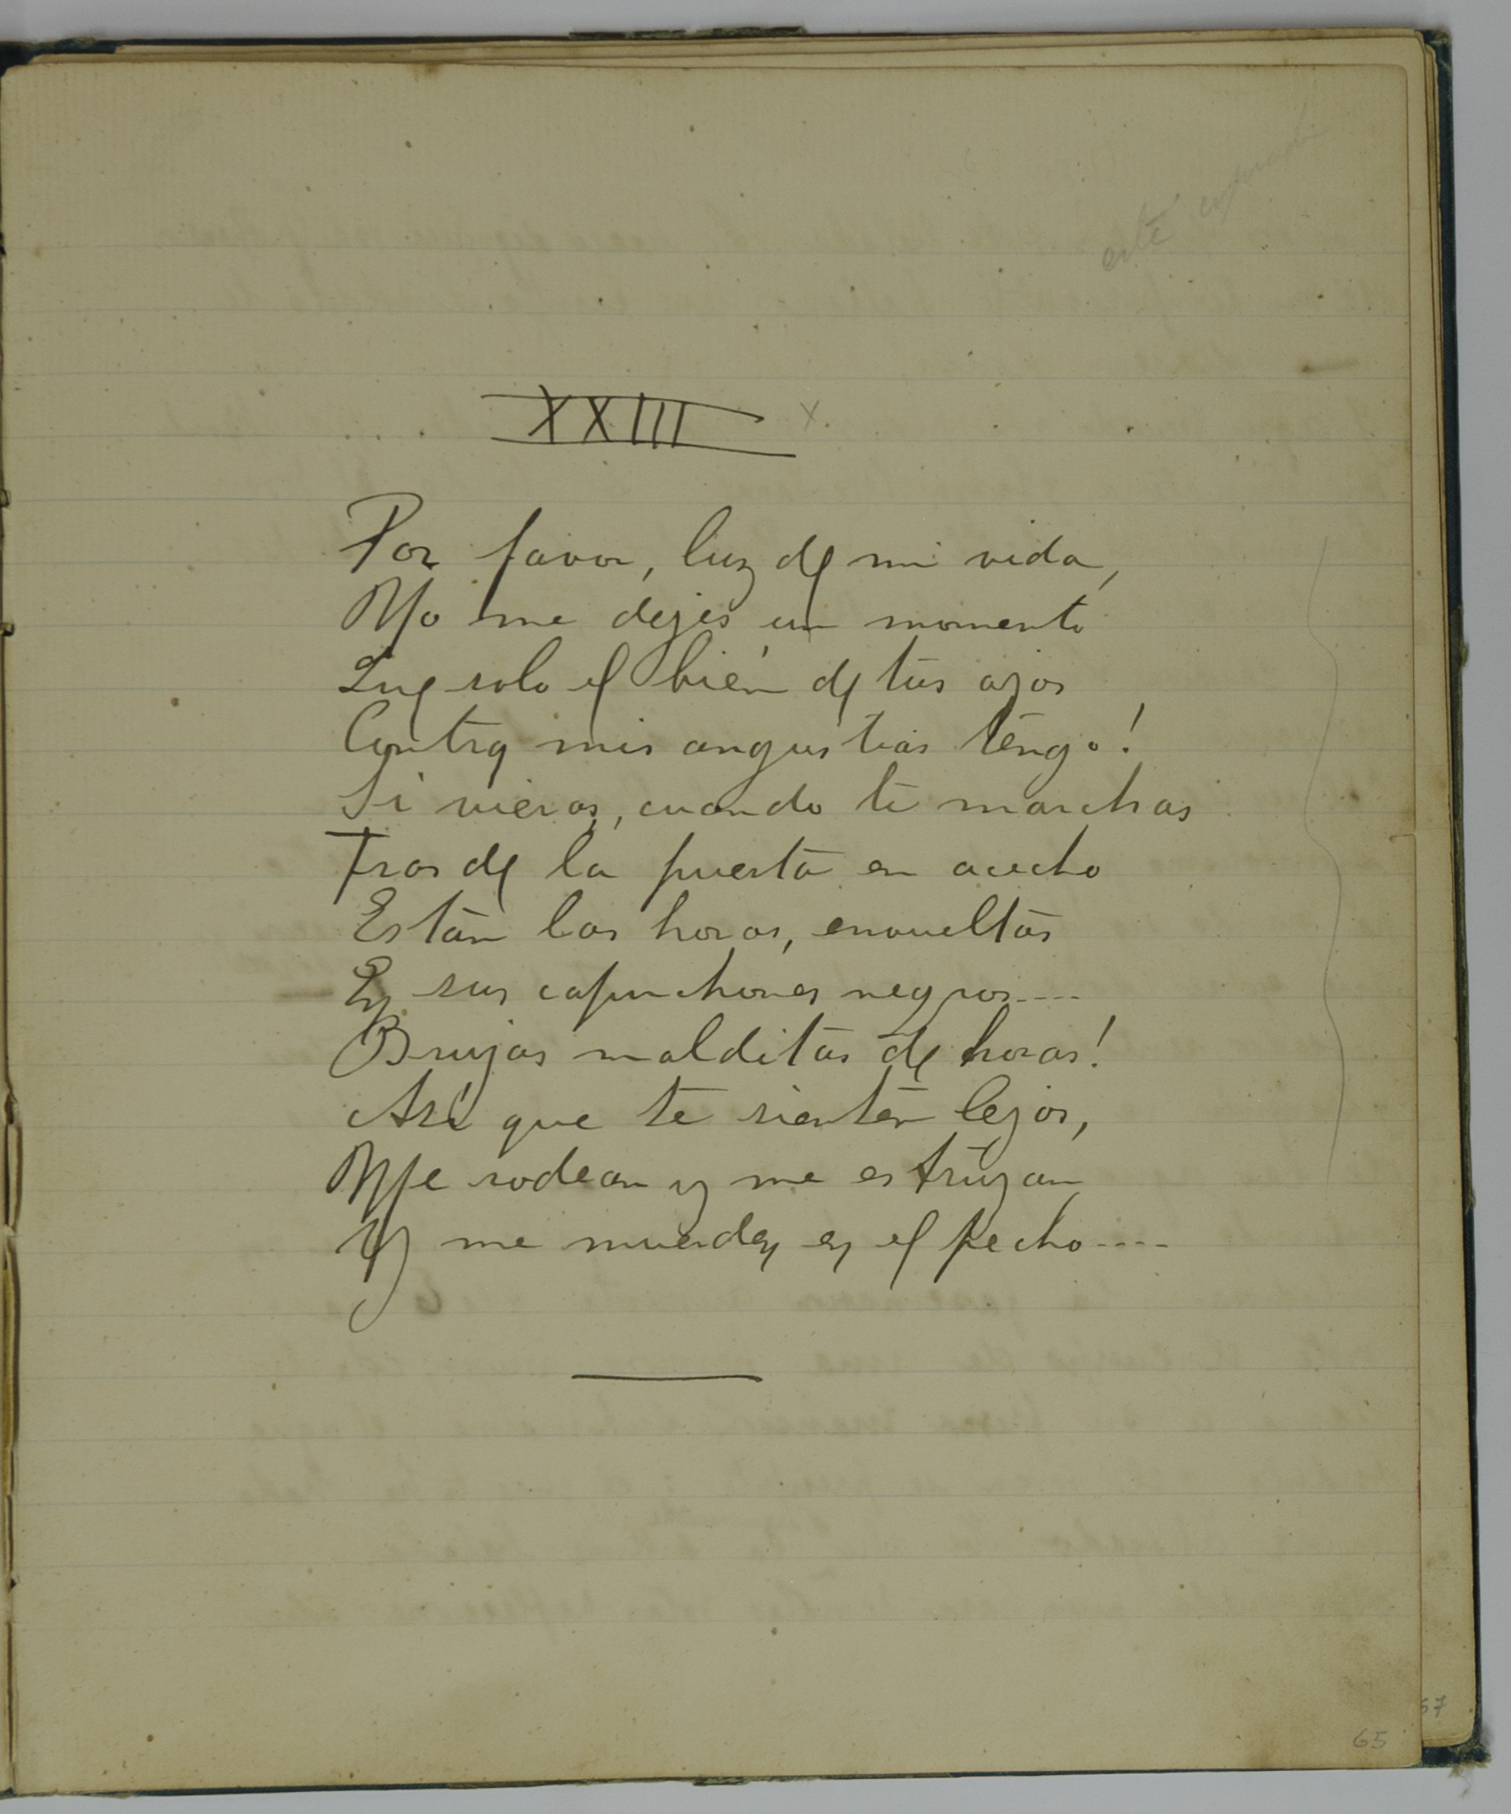 este
XXIII x
Por favor, luz de mi vida,
No me dejes un momento
Que solo el bién de tus ojos
Contra mis angustias tengo!
Si vieras, cuando te marchas
Tras de la puerta en acecho
Están las horas, envueltas
En sus capuchones negros....
Brujas malditas de horas!
Así que te sienten lejos,
Me rodean y me estrujan
Y me muerden en el pecho....
57
65